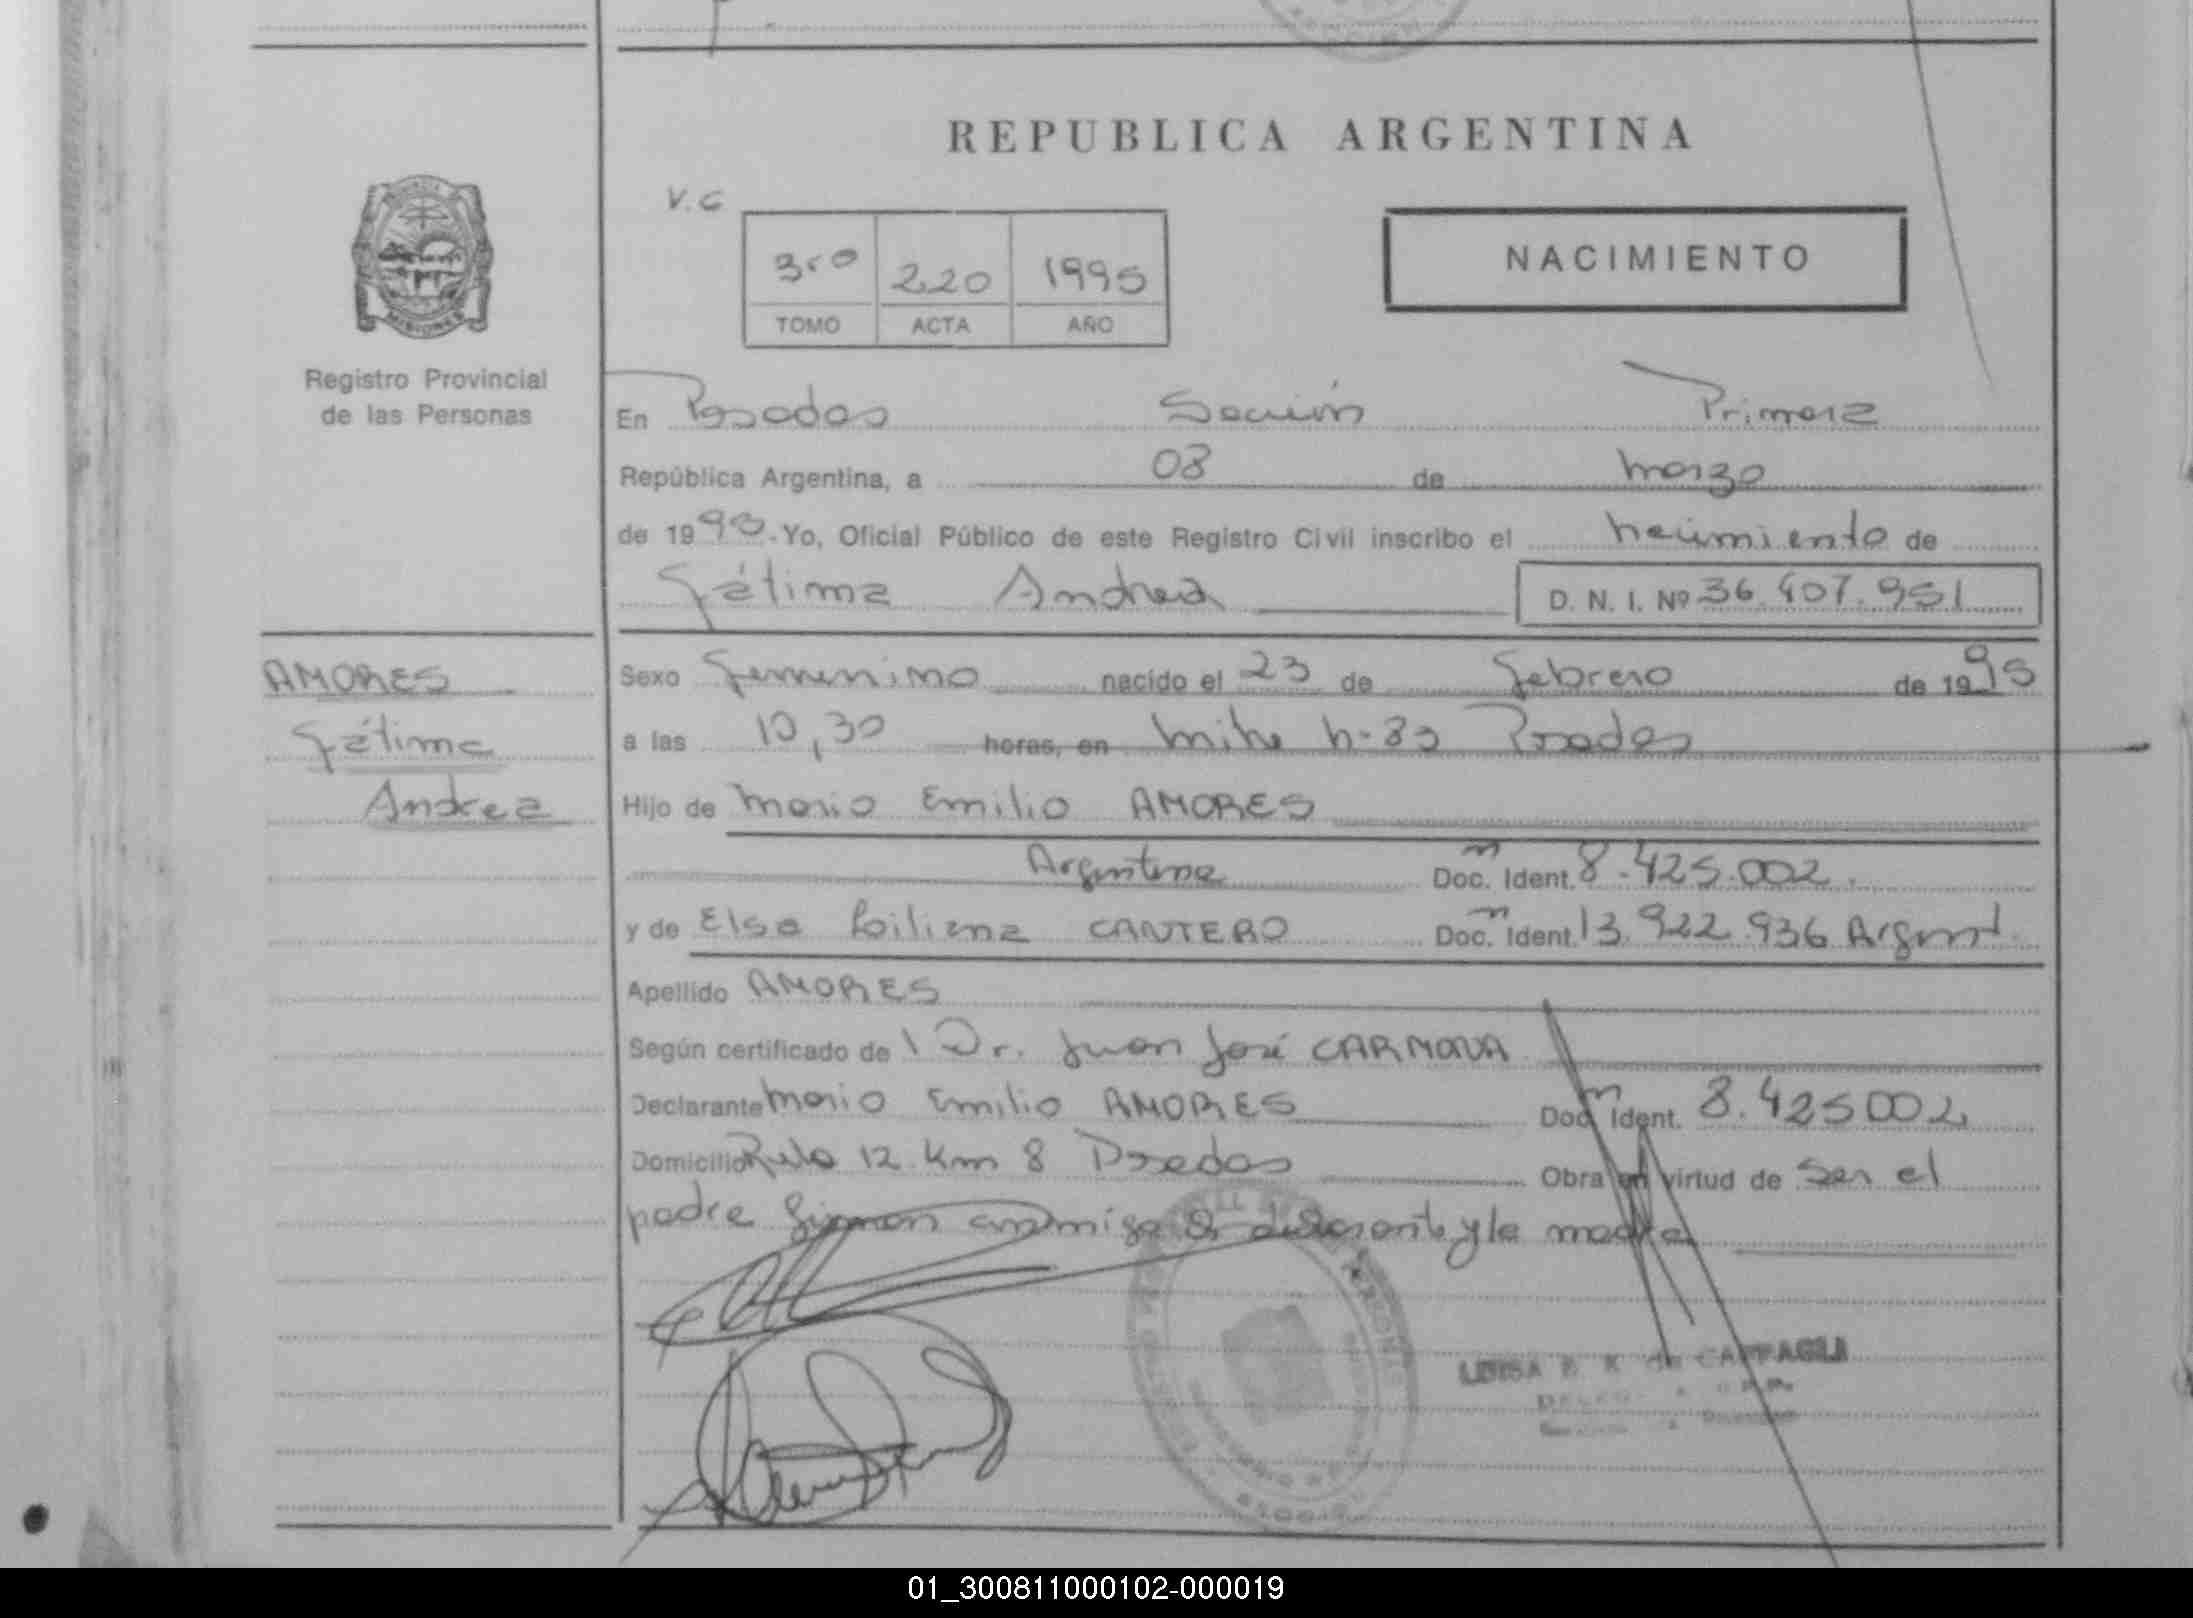 REPUBLICA ARGENTINA
V.C
NACIMIENTO
3ro 220 1995
TOMO ACTA AÑO
MISIONES
Registro Provincial
de las Personas
En Posadas Sección Primera
República Argentina, a 08 de marzo
de 1995. Yo, Oficial Público de este Registro Civil inscribo el nacimiento de
Fátima Andrea
D. N. I. Nº 36.407.951
AMORES
Fátima
Andrea
Sexo Femenino nacido el 23 de Febrero de 1995
a las 10,30 horas, en Posadas
Hijo de Mario Emilio AMORES
Argentina Doc. Ident. 8.425.002.
y de Elsa Liliana CANTERO Doc. Ident. 13.922.936 Argent.
Apellido AMORES
Según certificado de l Dr. Juan José CARMONA
Declarante Mario Emilio AMORES Doc. Ident. 8.425002
Domicilio Ruta 12 Km 8 Posadas Obra en virtud de Ser el
padre Firman conmigo el declarante y la madre
LUISA
01_300811000102-000019